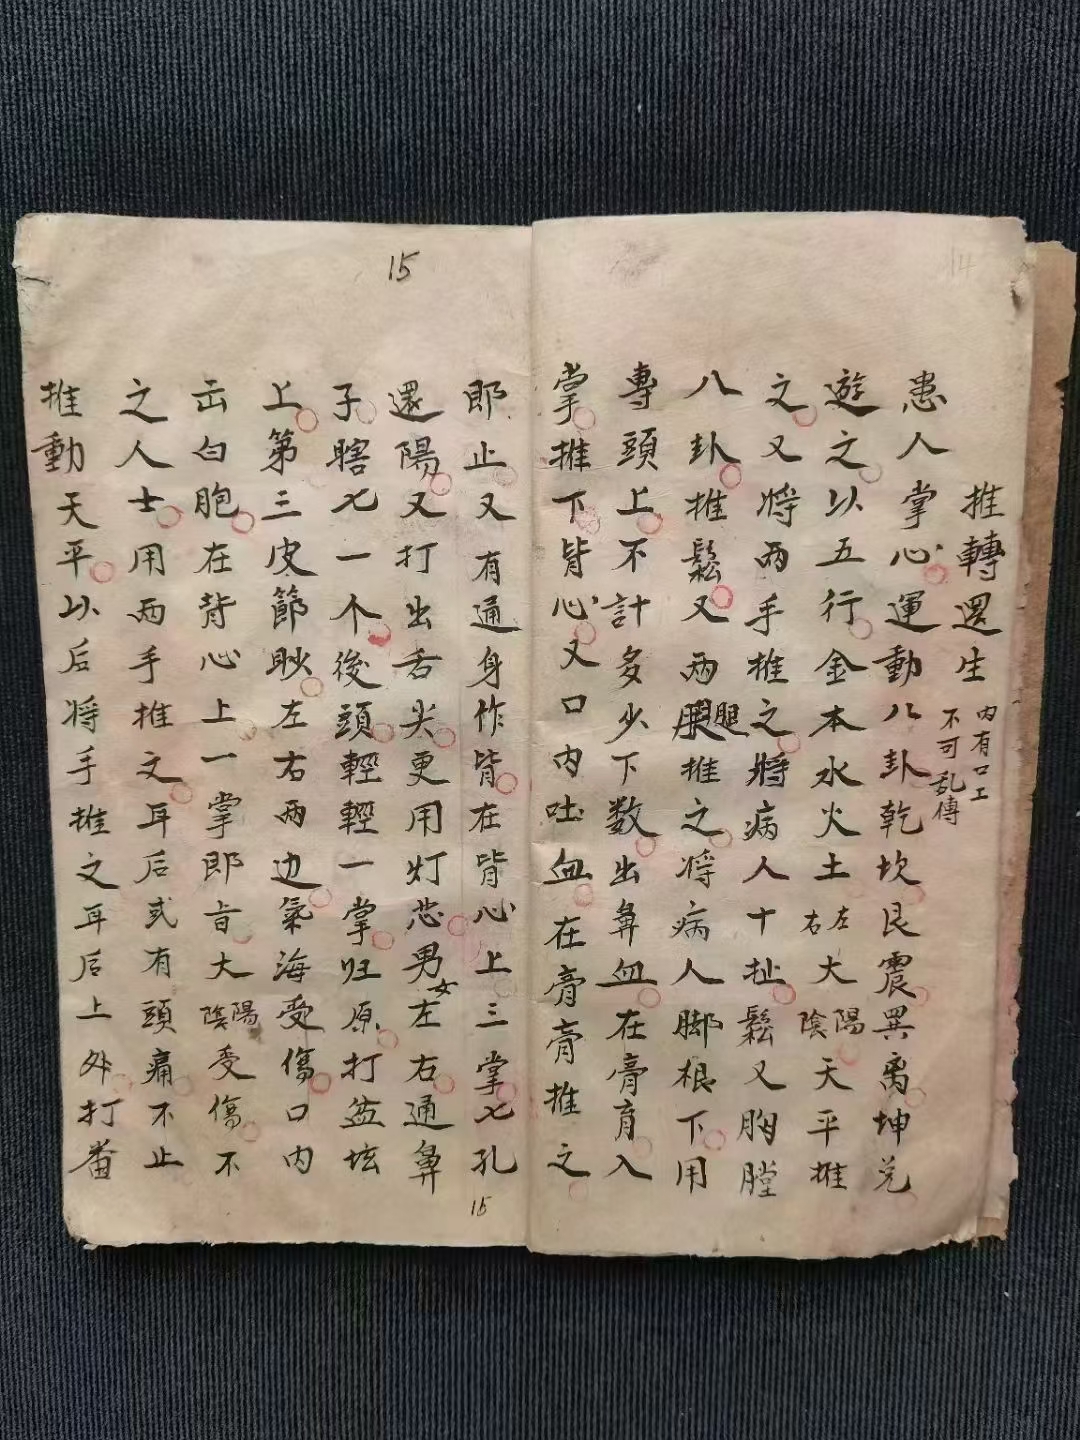 14
推轉還生
内有口工
不可乱傳
患人掌心運動八卦乾坎艮震巽离坤兑
遊之以五行金本水火土左右大陰陽天平推
之又将两手推之将病人十扯鬆又胸膛
八卦推鬆又两腿推之将病人脚根下用
專頭上不計多少下数出鼻血在膏育入
掌推下背心又口内吐血在膏膏推之
15
郎止又有通身作背在背心上三掌七孔
還陽又打出舌尖更用灯芯男左女右通鼻
子瞎七一个後頭輕輕一掌归原打盆坛
上第三皮節眇左右两边氣海受傷口内
击白胞在背心上一掌郎旨大陰陽受傷不
之人士用两手推之耳后或有頭痛不止
推動天平以后将手推之耳后上外打番
15